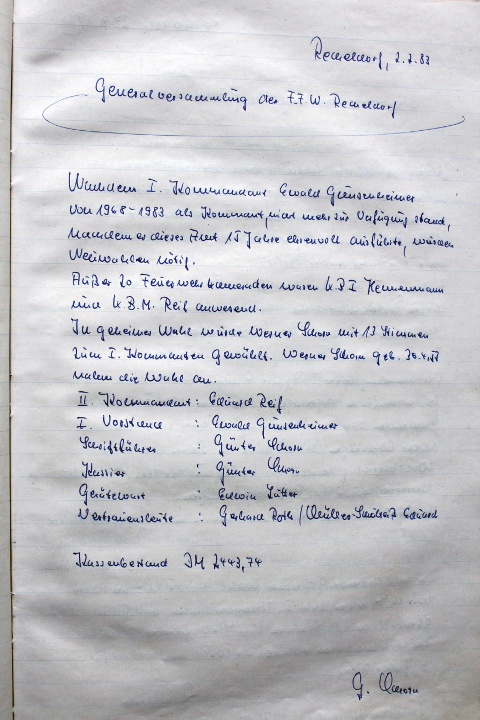 Recheldorf, 2.2.83
Generalversammlung der F.F.W. Recheldorf
Nachdem I. Kommandant Ewald Günsenheimer
von 1968-1983 als Kommant, nicht mehr zur Verfügung stand,
nachdem er dieses Amt 15 Jahre ehrenvoll ausführte, wurden
Neuwahlen nötig.
Außer 20 Feuerwehrkameraden waren K.B.I
und K.B.M. Reif anwesend.
In geheimer Wahl wurde Werner Schorn mit 13 Stimmen
zum I. Kommanten gewählt. Werner Schorn geb.
nahm die Wahl an.
II. Kommandant: Eduard Reif
I. Vorstand : Ewald Günsenheimer
Schriftführer : Günter Schorn
Kassier : Günter Schorn
Gerätewart : Edwin
Vertrauensleute : Gerhard Roth / Eduard
Kassenbestand DM 2443,74
G. Schorn